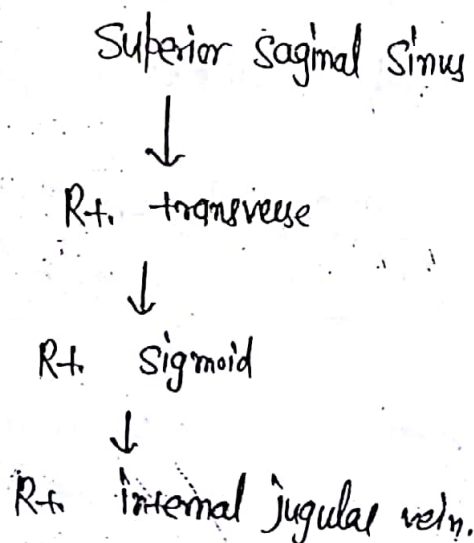 Superior saginal sinus
↓
Rt. transverse
↓
Rt. sigmoid
↓
Rt. internal jugular vein.